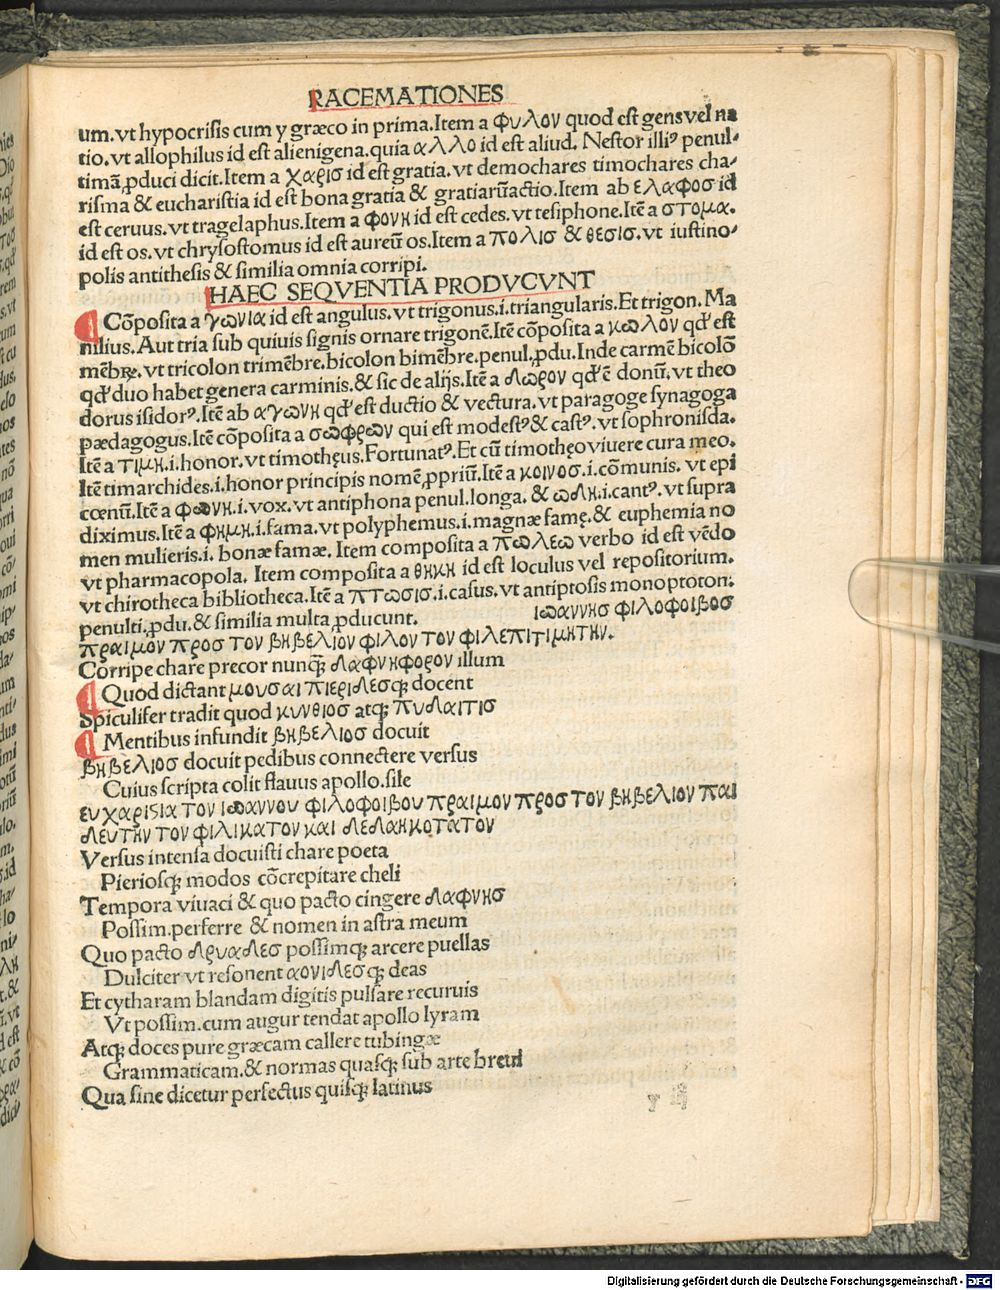 RACEMATIONES
um. vt hypocrisis cum y græco in prima. Item a φυλον quod est gens vel na
tio. vt allophilus id est alienigena. quia αλλο id est aliud. Nestor illiꝰ penul-
timã ꝓduci dicit. Item a χαρισ id est gratia. vt demochares timochares cha-
risma & eucharistia id est bona gratia & gratiarũactio. Item ab ελαφοσ id
est ceruus. vt tragelaphus. Item a φονη id est cedes. vt tesiphone. Itẽ a στομα.
id est os. vt chrysostomus id est aureũ os. Item a πολισ & θεσισ. vt iustino-
polis antithesis & similia omnia corripi.
HAEC SEQVENTIA PRODVCVNT
Cõposita a γωνια id est angulus. vt trigonus. i. triangularis. Et trigon. Ma
nilius. Aut tria sub quiuis signis ornare trigonẽ. Itẽ cõposita a κωλον qđ est
mẽbꝝ. vt tricolon trimẽbre. bicolon bimẽbre. penul. ꝓdu. Inde carmẽ bicolõ
qđ duo habet genera carminis. & sic de alijs. Itẽ a δωρον qđ ẽ donũ. vt theo
dorus isidorꝰ. Itẽ ab αγωνη qđ est ductio & vectura. vt paragoge synagoga
pædagogus. Itẽ cõposita a σωφρων qui est modestꝰ & castꝰ. vt sophronisda.
Itẽ a τιμη. i. honor. vt timotheus. Fortunatꝰ. Et cũ timotheo viuere cura meo.
Itẽ timarchides. i. honor principis nomẽ ꝓpriũ. Itẽ a κοινοσ. i. cõmunis. vt epi
cœnũ. Itẽ a φωνη. i. vox. vt antiphona penul. longa. & ωδη. i. cantꝰ. vt supra
diximus. Itẽ a φημη. i. fama. vt polyphemus. i. magnæ famę. & euphemia no
men mulieris. i. bonæ famæ. Item composita a πωλεω verbo id est vẽdo
vt pharmacopola. Item composita a θηκη id est loculus vel repositorium.
vt chirotheca bibliotheca. Itẽ a πτωσισ. i. casus. vt antiptosis monoptoton:
penulti. ꝓdu. & similia multa ꝓducunt. ιωαννησ φιλοφοιβοσ
πραιμον προσ τον βηβελιον φιλον τον φιλεπιτιμητην.
Corripe chare precor nunꝙ̃ δαφνηφορον illum
Quod dictant μουσαι πιεριδεσꝗ docent
Spiculifer tradit quod κυνθιοσ atꝗ πυδαιτισ
Mentibus infundit βηβελιοσ docuit
βηβελιοσ docuit pedibus connectere versus
Cuius scripta colit flauus apollo. sile
ευχαρισια τον ιωαννου φιλοφοιβου πραιμον προσ τον βηβελιον παι
δευτην τον φιλικατον και δεδαηκοτατον
Versus intensa docuisti chare poeta
Pieriosꝗ modos cõcrepitare cheli
Tempora viuaci & quo pacto cingere δαφνησ
Possim. perferre & nomen in astra meum
Quo pacto δρυαδεσ possimꝗ arcere puellas
Dulciter vt resonent αονιδεσꝗ deas
Et cytharam blandam digitis pulsare recuruis
Vt possim. cum augur tendat apollo lyram
Atꝗ doces pure græcam callere tubingæ
Grammaticam. & normas quasꝗ sub arte breui
Qua sine dicetur perfectus quisꝗ latinus
y iij
Digitalisierung gefördert durch die Deutsche Forschungsgemeinschaft - DFG